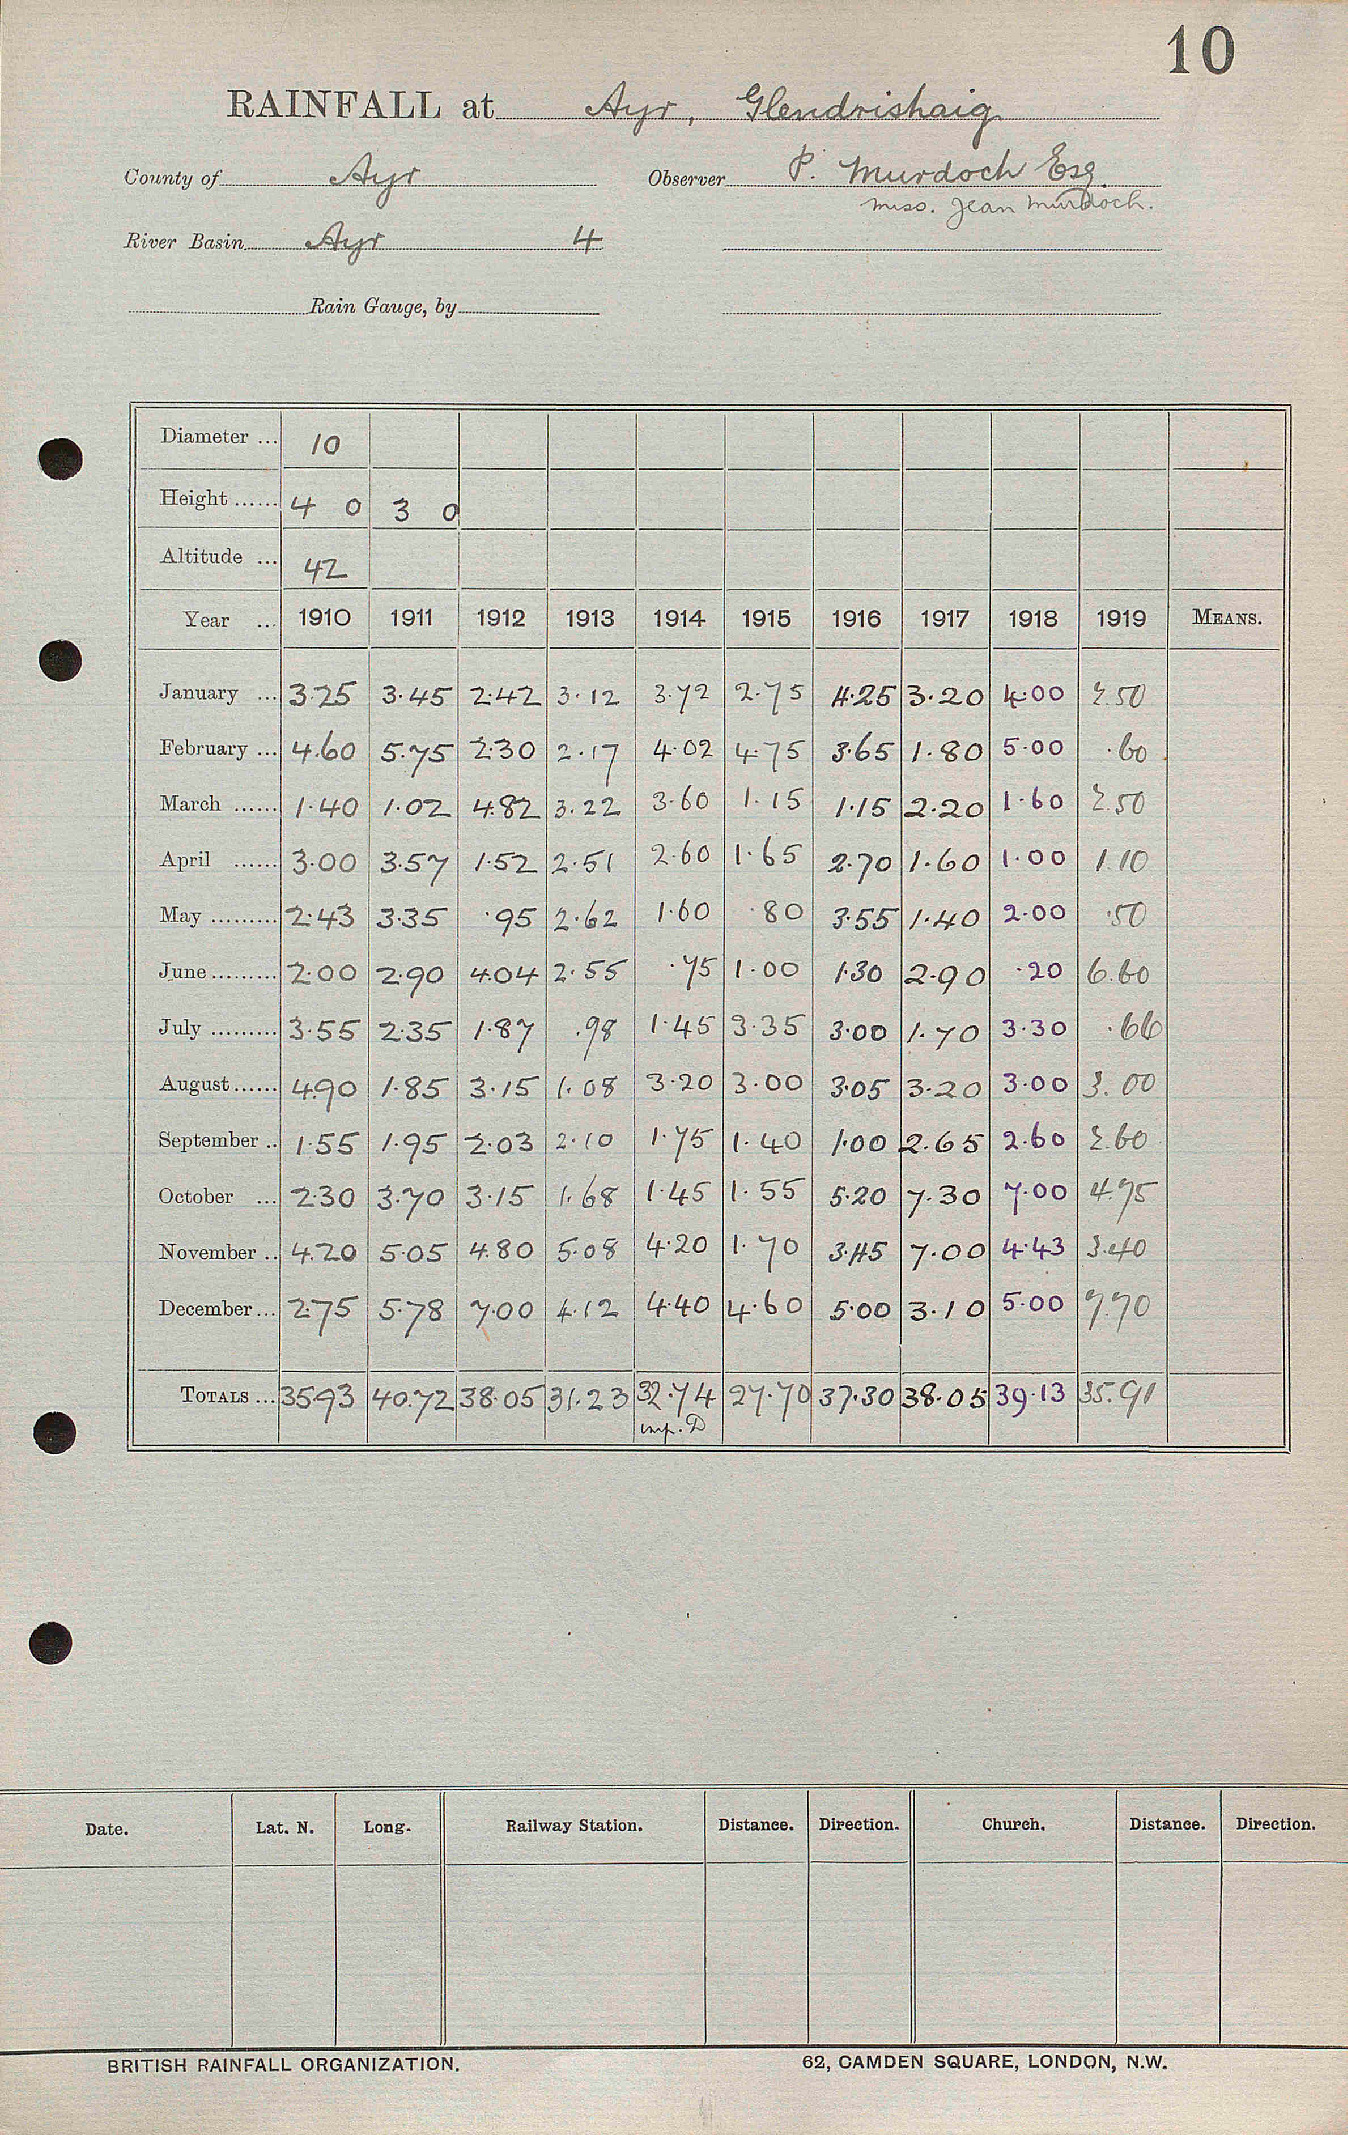 10
RAINFALL at Ayr, Glendrishaig
County of Ayr Observer P. Murdoch Esq.
Miss. Jean Murdoch.
River Basin Ayr 4
Rain Gauge, by
Diameter ... 10
Height ...... 4 0 3 0
Altitude ... 42
Year ... 1910 1911 1912 1913 1914 1915 1916 1917 1918 1919 MEANS.
January ... 3.25 3.45 2.42 3.12 3.72 2.75 4.25 3.20 4.00 2.50
February ... 4.60 5.75 2.30 2.17 4.02 4.75 3.65 1.80 5.00 .60
March ...... 1.40 1.02 4.82 3.22 3.60 1.15 1.15 2.20 1.60 2.50
April ...... 3.00 3.57 1.52 2.51 2.60 1.65 2.70 1.60 1.00 1.10
May ......... 2.43 3.35 .95 2.62 1.60 .80 3.55 1.40 2.00 .50
June ......... 2.00 2.90 4.04 2.55 .75 1.00 1.30 2.90 .20 6.60
July ......... 3.55 2.35 1.87 .98 1.45 3.35 3.00 1.70 3.30 .66
August ...... 4.90 1.85 3.15 1.08 3.20 3.00 3.05 3.20 3.00 3.00
September .. 1.55 1.95 2.03 2.10 1.75 1.40 1.00 2.65 2.60 2.60
October ... 2.30 3.70 3.15 1.68 1.45 1.55 5.20 7.30 7.00 4.75
November .. 4.20 5.05 4.80 5.08 4.20 1.70 3.45 7.00 4.43 3.40
December ... 2.75 5.78 7.00 4.12 4.40 4.60 5.00 3.10 5.00 7.70
TOTALS ... 35.93 40.72 38.05 31.23 32.74 27.70 37.30 38.05 39.13 35.91
Date. Lat. N. Long. Railway Station. Distance. Direction. Church. Distance. Direction.
BRITISH RAINFALL ORGANIZATION. 62, CAMDEN SQUARE, LONDON, N.W.